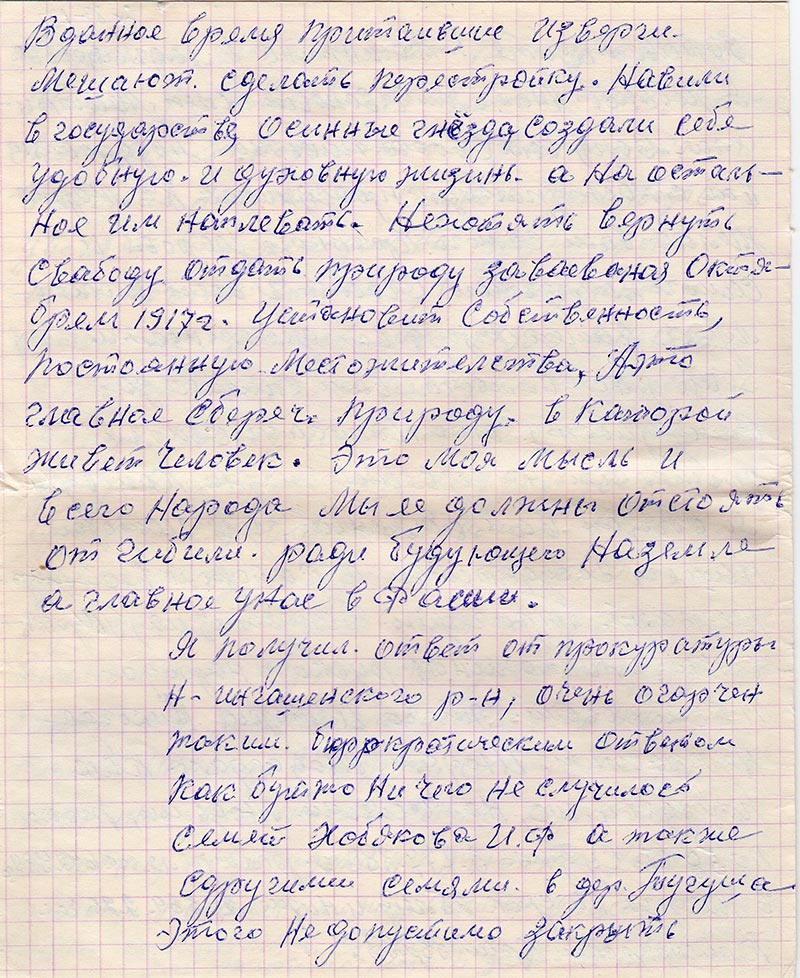 В данное время притаившие изверги.
Мешают. сделать перестройку. Навили
в государстве, Осинные гнёзда, создали себе
удобную. и духовную жизнь. а на осталь-
ное им наплевать. Нехотять вернуть
Свабоду отдать природу заваеваная Октя-
брем 1917г. Установит Собственность,
постоянную Местожительства, Аэто
главное сберечь природу. в каторой
живет человек. Это моя мысль и
всего народа Мы ее должны отстоять
от гибили. ради будующего Наземле
а главное у нас в
Я получил. ответ от прокуратуры
Н-ингашенского р-н, очень огорчен
таким. бюрократическим ответом
Как будто Ни чего не случилось
семей Хобякова И.Ф а также
сдругими семями. в дер. Тугуша
Этого Недопустимо закрыть